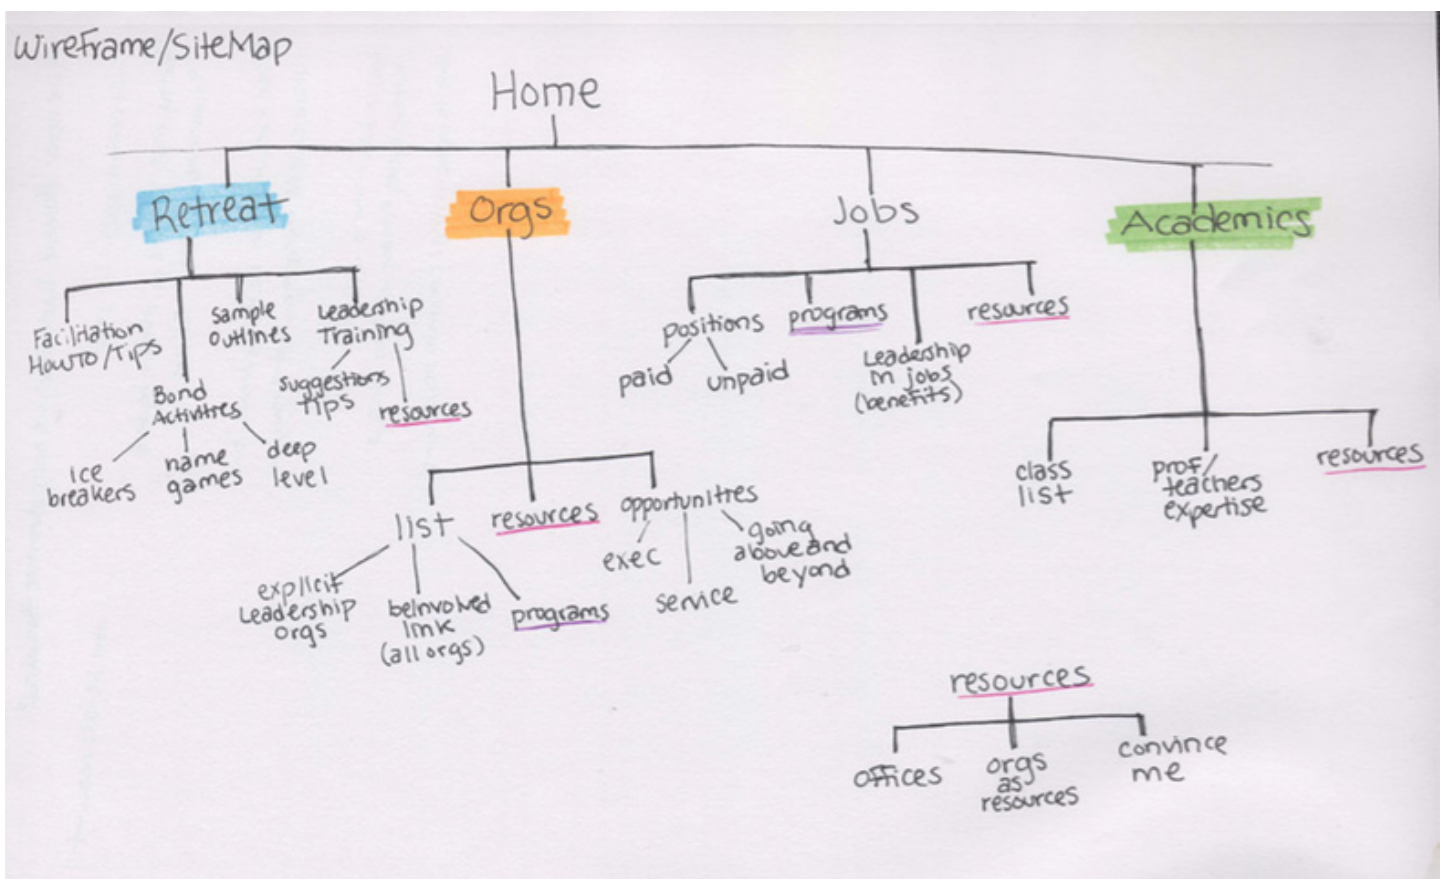 WireFrame/SiteMap
Home
Retreat
Orgs
Jobs
Academics
Facilitation
HowTO/Tips
Bond
Activities
ice
breakers
name
games
deep
level
Sample
outlines
Leadership
Training
suggestions
tips
resources
list
explicit
Leadership
orgs
beinvolved
link
(all orgs)
programs
resources
opportunities
exec
service
going
above and
beyond
positions
paid
unpaid
programs
Leadership
in jobs
(benefits)
resources
class
list
prof/
teachers
expertise
resources
resources
offices
orgs
as
resources
convince
me